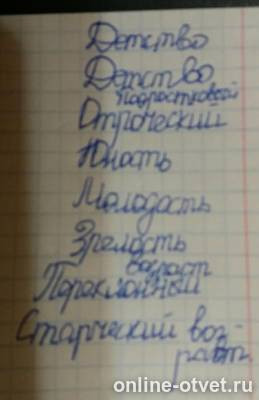 Детство
Детство
подростковой
Отроческий
Юность
Молодасть
Зрелость
возраст
Пореклонный
Старческий воз-
раст.
online-otvet.ru